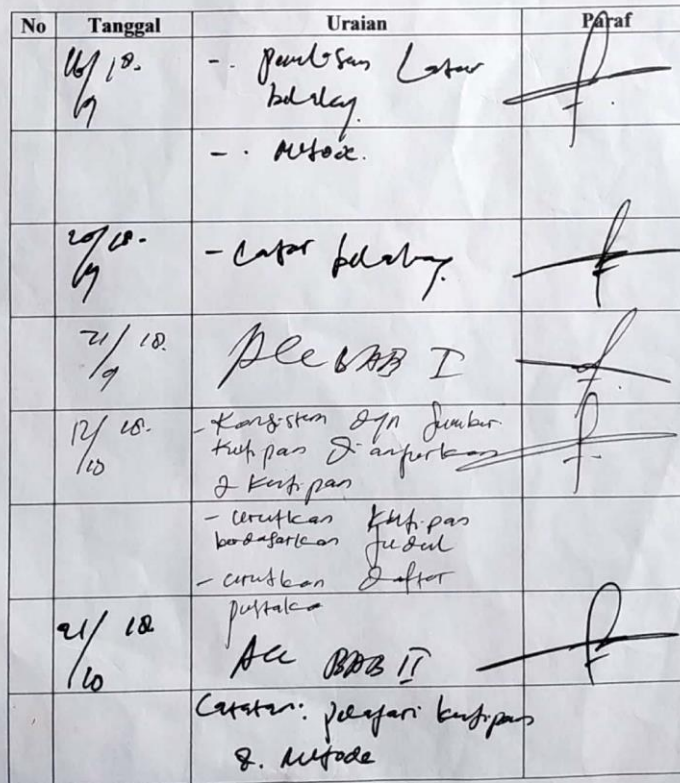 No Tanggal Uraian Paraf
16/9 18. - . penulisan Latar
belakang.
- . Metode.
20/9 18. - Latar belakang.
21/9 18. Acc BAB I
12/10 18. - Konsisten dgn Sumber
Kutipan dianjurkan
2 Kutipan
- urutkan Kutipan
berdasarkan Judul
- urutkan Daftar
pustaka
21/10 18 Acc BAB II
Catatan: pelajari kutipan
& Metode